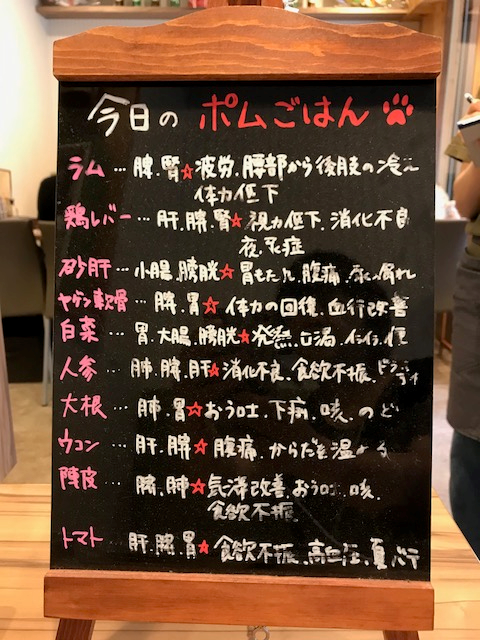 今日の ポムごはん
ラム … 脾.腎☆疲労.腰部から後肢の冷え
体力低下
鶏レバー … 肝.脾.腎☆視力低下.消化不良
夜尿症
砂肝 … 小腸.膀胱☆胃もたれ.腹痛.尿漏れ
ヤゲン軟骨 … 脾.胃☆体力の回復.血行改善
白菜 … 胃.大腸.膀胱☆発熱.口渇.イライラ.便
人参 … 肺.脾.肝☆消化不良.食欲不振.ドライアイ
大根 … 肺.胃☆おう吐.下痢.咳.のど
ウコン … 肝.脾☆腹痛.からだを温める
陳皮 … 脾.肺☆気滞改善.おう吐.咳.
食欲不振
トマト 肝.脾.胃☆食欲不振.高血圧.夏バテ